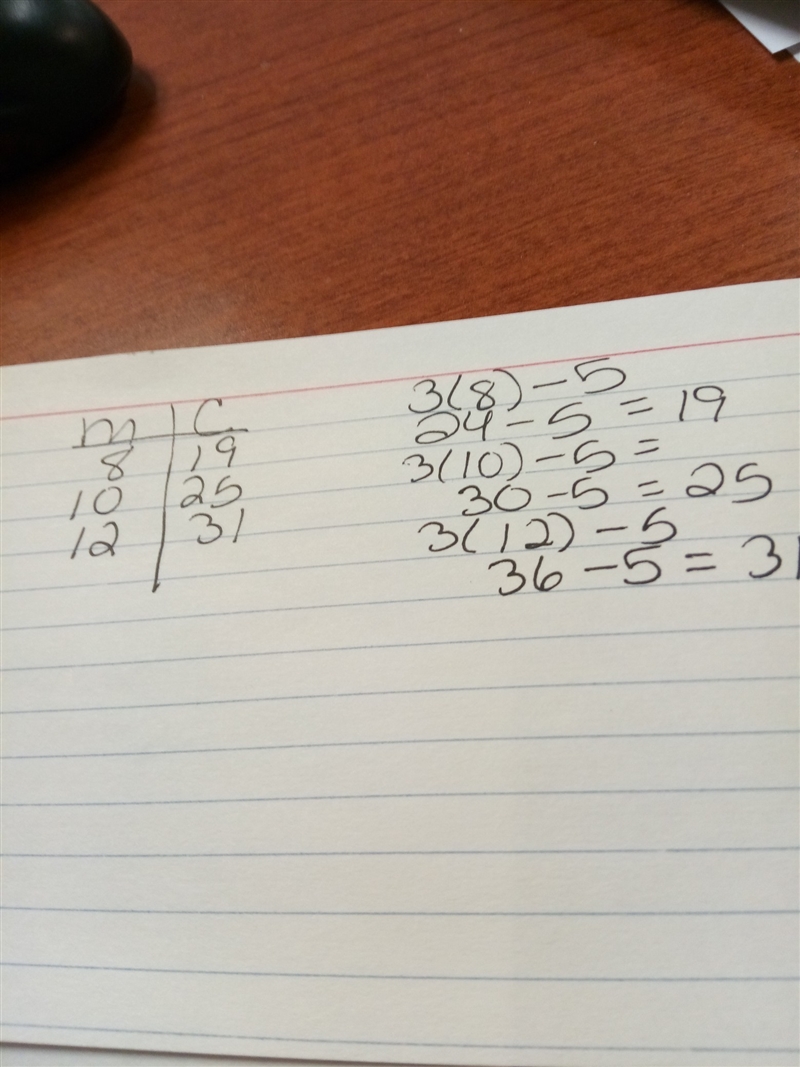 m | C
8 | 19
10 | 25
12 | 31
3(8) - 5
24 - 5 = 19
3(10) - 5 =
30 - 5 = 25
3(12) - 5
36 - 5 = 31